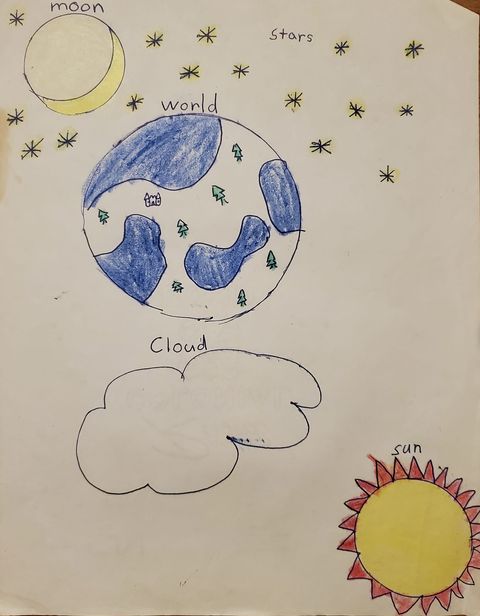 moon
Stars
world
Cloud
sun